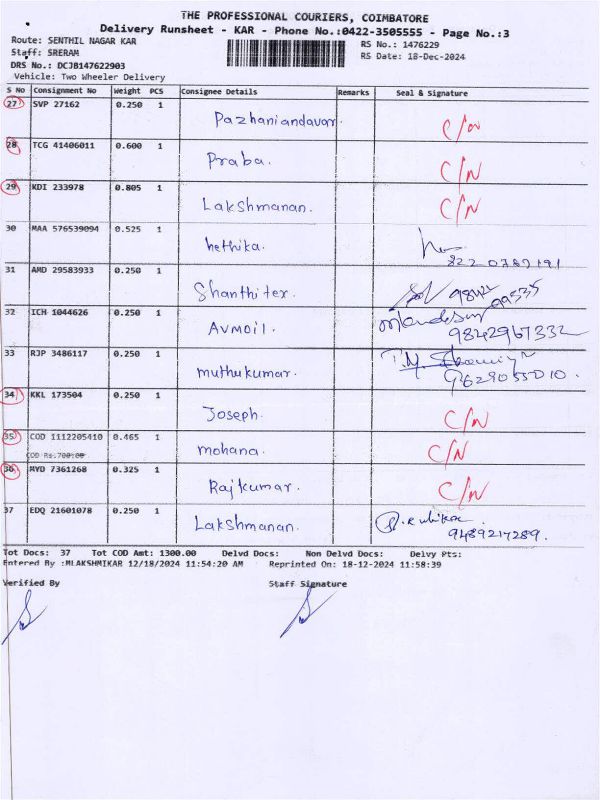 THE PROFESSIONAL COURIERS, COIMBATORE
Delivery Runsheet - KAR - Phone No.:0422-3505555 - Page No.:3
Route: SENTHIL NAGAR KAR
Staff: SRERAM
DRS No.: DCJB147622903
Vehicle: Two Wheeler Delivery
RS No.: 1476229
RS Date: 18-Dec-2024
S No Consignment No Weight PCS Consignee Details Remarks Seal & Signature
27 SVP 27162 0.250 1 Pazhaniandavar. C/N
28 TCG 41406011 0.600 1 Praba. C/N
29 KDI 233978 0.805 1 Lakshmanan. C/N
30 MAA 576539094 0.525 1 hethika.
31 AMD 29583933 0.250 1 Shanthi tex. 98422 99535
32 ICH 1044626 0.250 1 Avmoil. 9842967332
33 RJP 3486117 0.250 1 muthukumar. 9629055010.
34 KKL 173504 0.250 1 Joseph. C/N
35 COD 1112205410 0.465 1 mohana. C/N
COD Rs.700.00
36 MYD 7361268 0.325 1 Rajkumar. C/N
37 EDQ 21601078 0.250 1 Lakshmanan. 9489217289.
Tot Docs: 37 Tot COD Amt: 1300.00 Delvd Docs: Non Delvd Docs: Delvy Pts:
Entered By :MLAKSHMIKAR 12/18/2024 11:54:20 AM Reprinted On: 18-12-2024 11:58:39
Verified By Staff Signature